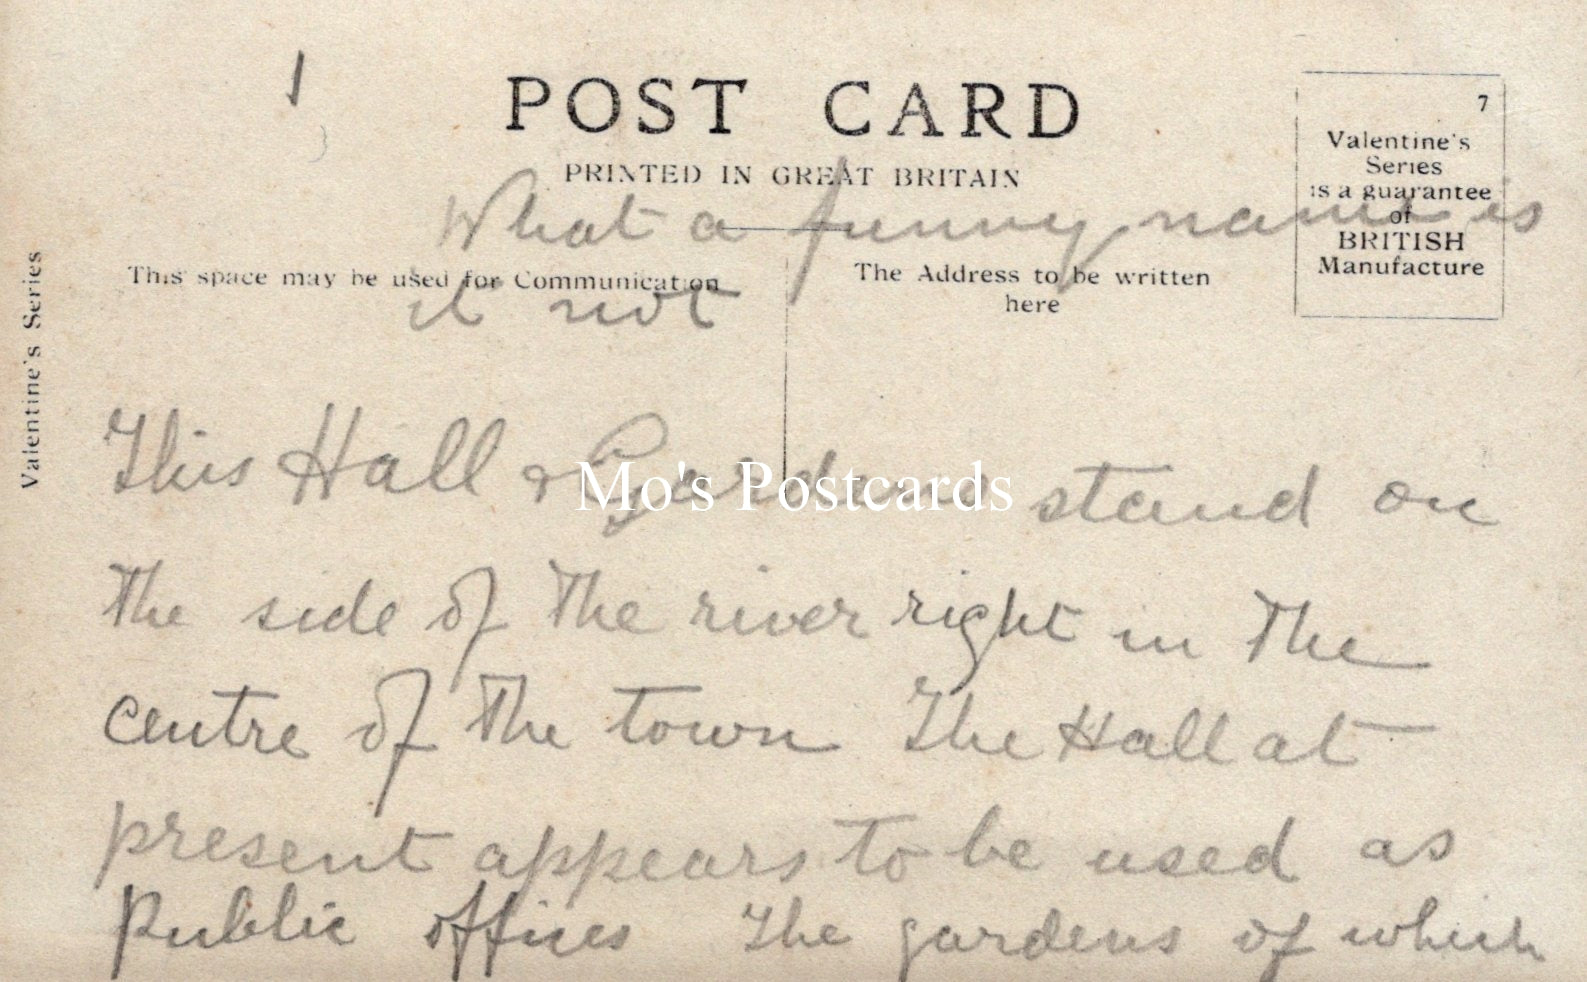 1
POST CARD
PRINTED IN GREAT BRITAIN
7
Valentine's
Series
is a guarantee
of
BRITISH
Manufacture
What a funny name is
it not
This space may be used for Communication
The Address to be written
here
Valentine's Series
This Hall & Gardens stand on
Mo's Postcards
the side of the river right in the
centre of the town The Hall at
present appears to be used as
Public offices The gardens of which